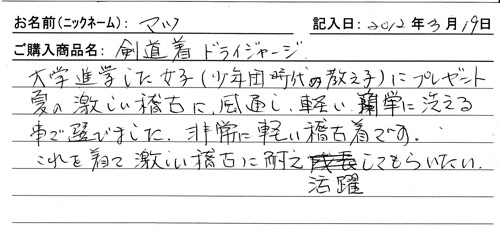 お名前(ニックネーム): マツ 記入日: 2012年3月19日
ご購入商品名: 剣道着 ドライジャージ
大学進学した女子(少年団時代の教え子)にプレゼント
夏の激しい稽古に、風通し、軽い、簡単に洗える
事で選びました。非常に軽い稽古着です。
これを着て激しい稽古に耐え成長してもらいたい。
活躍